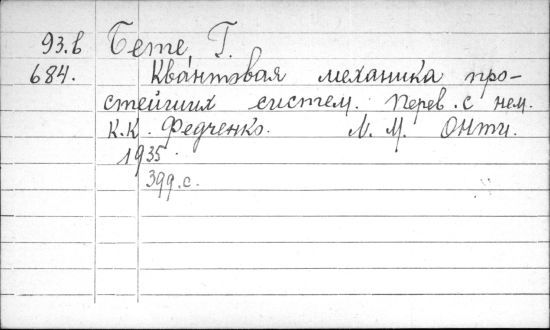 93.в Бете Г.
684. Квантовая механика про-
стейших систем. Перев. с нем.
К.К. Федченко. Л. М. ОНТИ.
1935.
399.с.